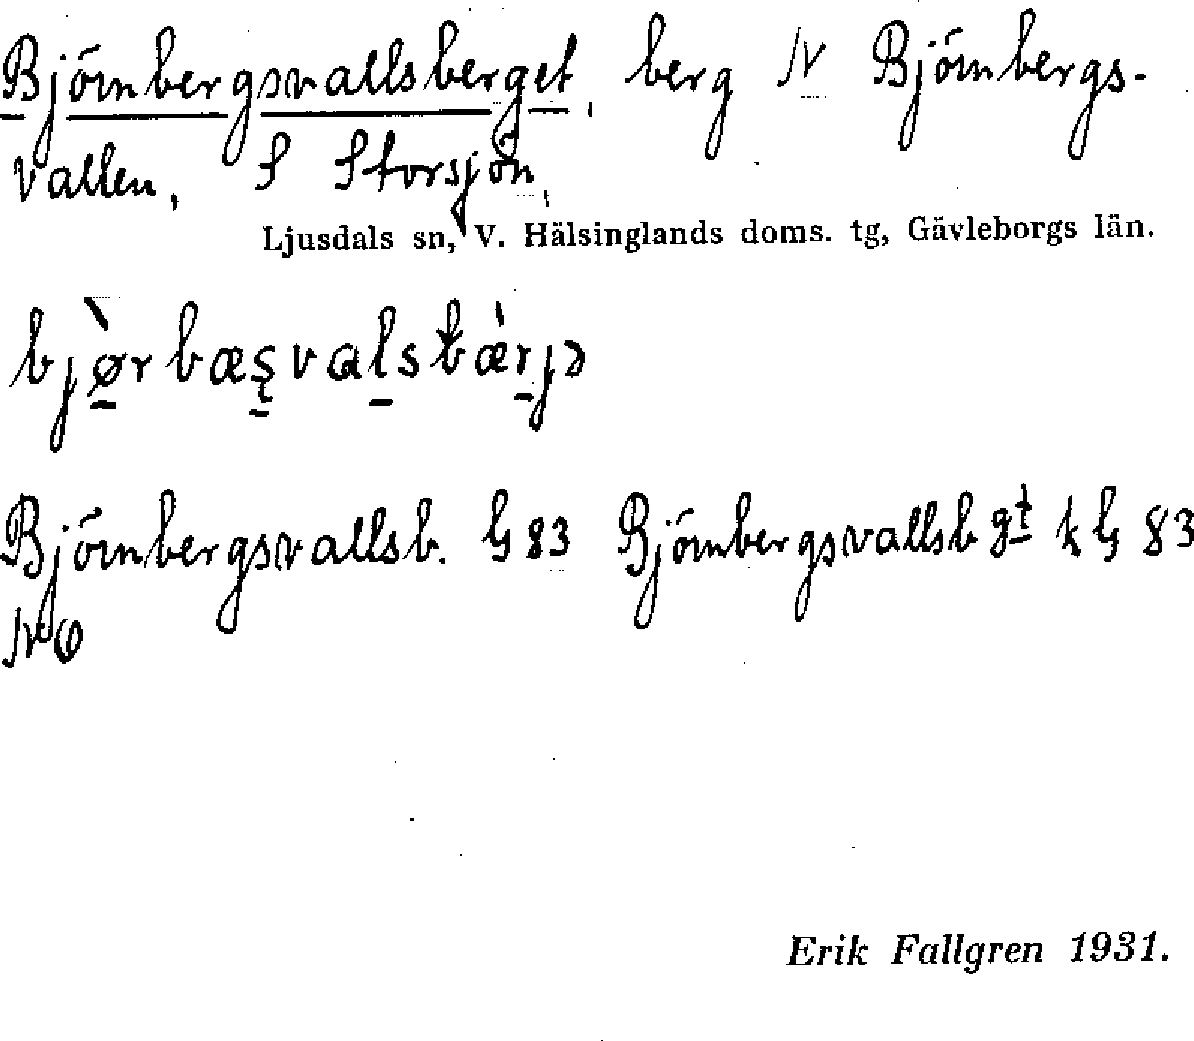 Björnbergsvallsberget, berg N Björnbergs-
vallen, S Storsjön,
Ljusdals sn, V. Hälsinglands doms. tg, Gävleborgs län.
bjø̀rbæsvalsbæ̀rjə
Björnbergsvallsb. G 83 Björnbergsvallsbgt k G 83
NO
Erik Fallgren 1931.